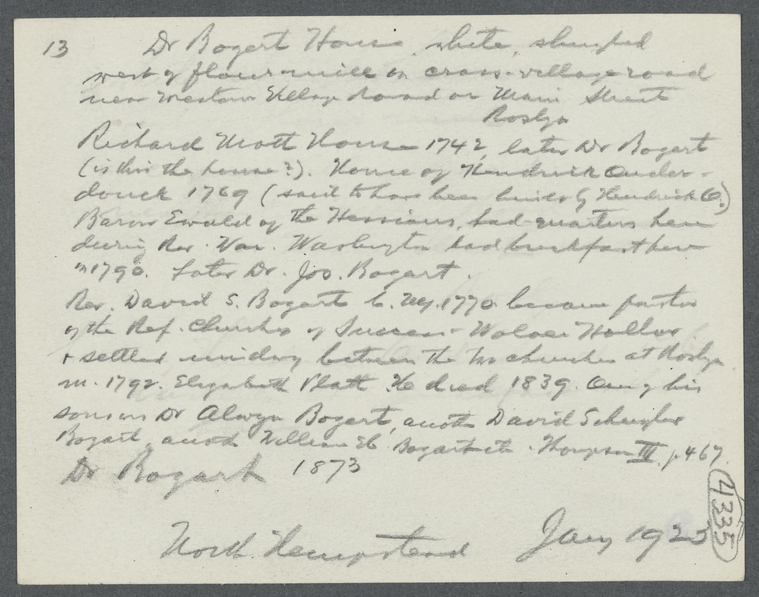 13 Dr Bogart House, white, shingled
west of flour-mill on cross-village road
near Western Village Road or Main Street
Roslyn
Richard Mott House 1742, later Dr Bogart
(is this the house?). House of Hendrick Onder-
donck 1769 (said to have been built by Hendrick O.)
Baron Ewald of the Hessians, had quarters here
during Rev. War. Washington had breakfast here
in 1790. Later Dr. Jos. Bogart.
Rev. David S. Bogart b. N.Y. 1770 became pastor
of the Ref. Churches of Success + Wolver Hollow
+ settled midway between the two churches at Roslyn
m. 1792. Elizabeth Platt. He died 1839. One of his
sons was Dr Alwyn Bogart, another David Schuyler
Bogart, another William H. Bogart etc. Thompson III p. 467.
Dr Bogart 1873
North Hempstead Jany 1923
4335